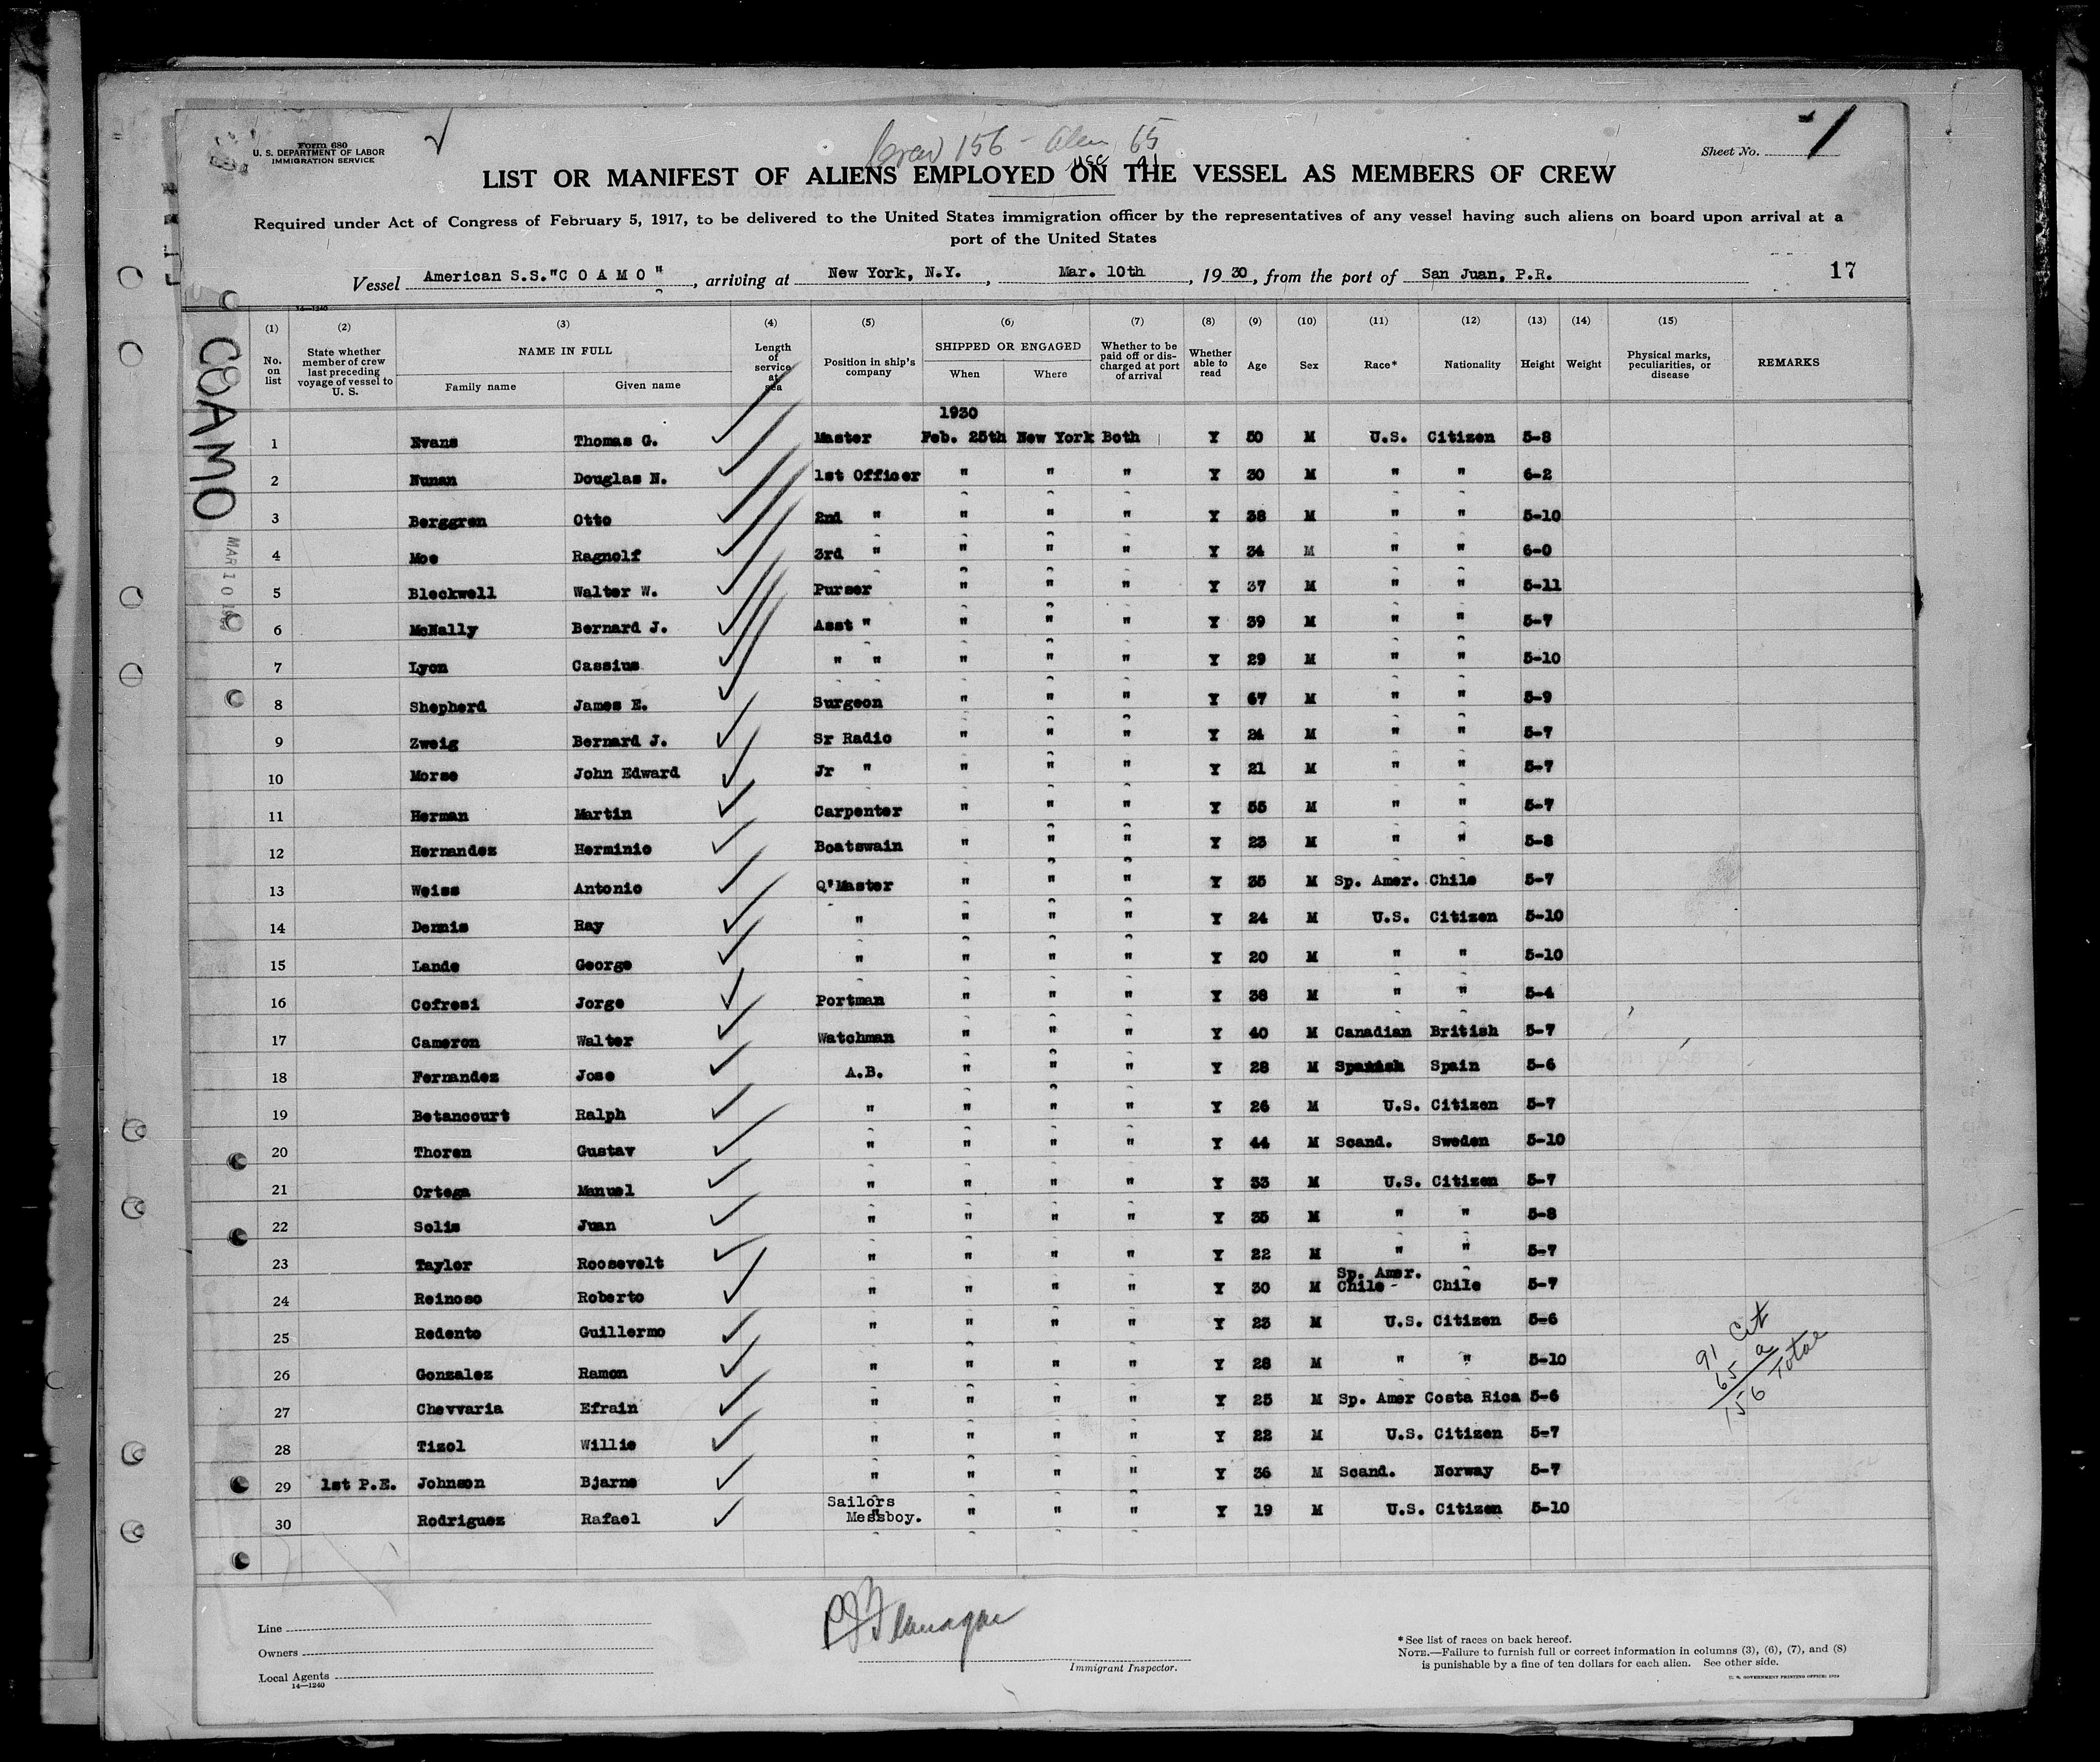 Form 680
U. S. DEPARTMENT OF LABOR
IMMIGRATION SERVICE
Crew 156 - Alien 65
USC 91
Sheet No. 1
LIST OR MANIFEST OF ALIENS EMPLOYED ON THE VESSEL AS MEMBERS OF CREW
Required under Act of Congress of February 5, 1917, to be delivered to the United States immigration officer by the representatives of any vessel having such aliens on board upon arrival at a
port of the United States
Vessel American S.S."C O A M O", arriving at New York, N.Y., Mar. 10th, 1930, from the port of San Juan, P.R. 17
14—1240
COAMO
MAR 10
(1) (2) (3) (4) (5) (6) (7) (8) (9) (10) (11) (12) (13) (14) (15)
No. on list
State whether member of crew last preceding voyage of vessel to U. S.
NAME IN FULL
Family name Given name
Length of service at sea
Position in ship's company
SHIPPED OR ENGAGED
When Where
Whether to be paid off or discharged at port of arrival
Whether able to read
Age Sex Race* Nationality Height Weight
Physical marks, peculiarities, or disease
REMARKS
1930
1 Evans Thomas G. Master Feb. 25th New York Both Y 50 M U.S. Citizen 5-8
2 Nunan Douglas N. 1st Officer " " " Y 30 M " " 6-2
3 Berggren Otto 2nd " " " " Y 38 M " " 5-10
4 Moe Ragnolf 3rd " " " " Y 34 M " " 6-0
5 Bleckwell Walter W. Purser " " " Y 37 M " " 5-11
6 McNally Bernard J. Asst " " " " Y 39 M " " 5-7
7 Lyon Cassius " " " " " Y 29 M " " 5-10
8 Shepherd James E. Surgeon " " " Y 67 M " " 5-9
9 Zweig Bernard J. Sr Radio " " " Y 24 M " " 5-7
10 Morse John Edward Jr " " " " Y 21 M " " 5-7
11 Herman Martin Carpenter " " " Y 55 M " " 5-7
12 Hernandez Herminio Boatswain " " " Y 23 M " " 5-8
13 Weiss Antonio Q'Master " " " Y 35 M Sp. Amer. Chile 5-7
14 Dennis Ray " " " " Y 24 M U.S. Citizen 5-10
15 Lande George " " " " Y 20 M " " 5-10
16 Cofresi Jorge Portman " " " Y 38 M " " 5-4
17 Cameron Walter Watchman " " " Y 40 M Canadian British 5-7
18 Fernandez Jose A.B. " " " Y 28 M Spanish Spain 5-6
19 Betancourt Ralph " " " " Y 26 M U.S. Citizen 5-7
20 Thoren Gustav " " " " Y 44 M Scand. Sweden 5-10
21 Ortega Manuel " " " " Y 33 M U.S. Citizen 5-7
22 Solis Juan " " " " Y 35 M " " 5-8
23 Taylor Roosevelt " " " " Y 22 M " " 5-7
24 Reinoso Roberto " " " " Y 30 M Sp. Amer. Chile - Chile 5-7
25 Redento Guillermo " " " " Y 23 M U.S. Citizen 5-6
26 Gonzalez Ramon " " " " Y 28 M " " 5-10
27 Chevvaria Efrain " " " " Y 25 M Sp. Amer Costa Rica 5-6
28 Tizol Willie " " " " Y 22 M U.S. Citizen 5-7
29 1st P.E. Johnson Bjarne " " " " Y 36 M Scand. Norway 5-7
30 Rodriguez Rafael Sailors Messboy. " " " Y 19 M U.S. Citizen 5-10
91 Cit
65 a
156 Total
Line
Owners
Local Agents
14—1240
P J Flanagan
Immigrant Inspector.
* See list of races on back hereof.
NOTE.—Failure to furnish full or correct information in columns (3), (6), (7), and (8)
is punishable by a fine of ten dollars for each alien. See other side.